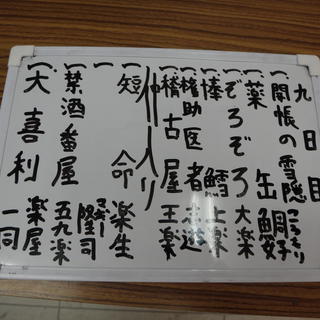 九日目
一、開帳の雪隠 こうもり
一、薬缶 鯛好
一、ぞろぞろ 大楽
一、棒鱈 上楽
一、権助医者 志遊
一、稽古屋 王楽
仲入り
一、短命 楽生
一、禁酒番屋 五九楽
一、大喜利 楽屋一同